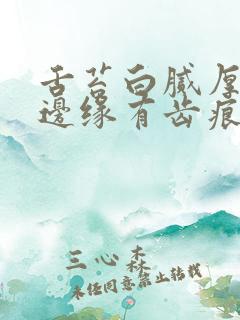 舌苔白腻厚
邊缘有齿痕
三心森
未经同意禁止转载